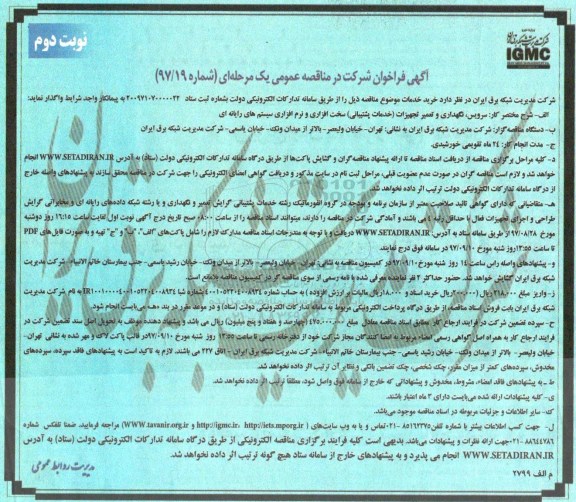 نوبت دوم
IGMC
آگهی فراخوان شرکت در مناقصه عمومی یک مرحله‌ای (شماره ۹۷/۱۹)
شرکت مدیریت شبکه برق ایران در نظر دارد خرید خدمات موضوع مناقصه ذیل را از طریق سامانه تدارکات الکترونیکی دولت بشماره ثبت ستاد به پیمانکار واجد شرایط واگذار نماید:
الف- شرح مختصر کار: سرویس، نگهداری و تعمیر تجهیزات (خدمات پشتیبانی) سخت افزاری و نرم افزاری سیستم های رایانه ای
ب- دستگاه مناقصه گزار: شرکت مدیریت شبکه برق ایران به نشانی: تهران- خیابان ولیعصر- بالاتر از میدان ونک- خیابان یاسمی- شرکت مدیریت شبکه برق ایران
ج- مدت انجام کار: ۲۴ ماه تقویمی خورشیدی.
د- کلیه مراحل برگزاری مناقصه از دریافت اسناد مناقصه تا ارائه پیشنهاد مناقصه‌گران و گشایش پاکت‌ها از طریق درگاه سامانه تدارکات الکترونیکی دولت (ستاد) به آدرس WWW.SETADIRAN.IR انجام
خواهد شد و لازم است مناقصه گران در صورت عدم عضویت قبلی، مراحل ثبت نام در سایت مذکور و دریافت گواهی امضای الکترونیکی را جهت شرکت در مناقصه محقق سازند. به پیشنهادهای واصله خارج
از درگاه سامانه تدارکات الکترونیکی دولت ترتیب اثر داده نخواهد شد.
هـ- متقاضیانی که دارای گواهی تائید صلاحیت معتبر از سازمان برنامه و بودجه در گروه انفورماتیک رشته خدمات پشتیبانی گرایش تعمیر و نگهداری و یا رشته شبکه داده‌های رایانه ای و مخابراتی گرایش
طراحی و اجرای تجهیزات فعال با حداقل رتبه می باشند و آمادگی شرکت در مناقصه را دارند، میتوانند اسناد مناقصه را از ساعت ۰۸:۰۰ صبح تاریخ درج آگهی نوبت اول لغایت ساعت ۱۶:۱۵ روز دوشنبه
مورخ ۹۷/۰۸/۲۸ از طریق سامانه ستاد به آدرس: WWW.SETADIRAN.IR دریافت و با توجه به مندرجات اسناد مناقصه مدارک لازم را شامل پاکت‌های "الف"، "ب" و "ج" تهیه و به صورت فایل‌های PDF
تا ساعت ۱۳:۵۵ روز شنبه مورخ ۹۷/۰۹/۱۰ در سامانه فوق درج نمایند.
و- پیشنهادهای واصله راس ساعت ۱۴ روز شنبه مورخ ۹۷/۰۹/۱۰ در کمیسیون مناقصه به نشانی: تهران- خیابان ولیعصر- بالاتر از میدان ونک- خیابان رشید یاسمی- جنب بیمارستان خاتم الانبیاء- شرکت مدیریت
شبکه برق ایران گشایش خواهد شد. حضور حداکثر ۲ نفر نماینده معرفی شده با نامه رسمی از سوی مناقصه گر در کمیسیون مناقصه بلامانع است.
ز- واریز مبلغ ۲۱۸.۰۰۰ ریال ( ریال خرید اسناد و ۱۸.۰۰۰ ریال مالیات بر ارزش افزوده) به حساب شماره به نام شرکت مدیریت
شبکه برق ایران بابت فروش اسناد مناقصه از طریق درگاه پرداخت الکترونیکی مربوط به سامانه تدارکات الکترونیکی دولت (ستاد) و در موعد مقرر در بند «هـ» می‌بایست انجام شود.
ح- سپرده تضمین شرکت در فرایند ارجاع کار مطابق اسناد مناقصه معادل مبلغ ۴۷۵.۰۰۰.۰۰۰ (چهارصد و هفتاد و پنج میلیون) ریال می باشد و پیشنهاد دهنده موظف به تحویل اصل سند تضمین شرکت در
فرایند ارجاع کار به همراه اصل گواهی رسمی امضاء مربوط به امضا کنندگان مجاز شرکت خود از دفترخانه رسمی تا ساعت ۱۳:۵۵ روز شنبه مورخ ۹۷/۰۹/۱۰ در قالب پاکت لاک و مهر شده به نشانی تهران-
خیابان ولیعصر- بالاتر از میدان ونک- خیابان رشید یاسمی- جنب بیمارستان خاتم الانبیاء- شرکت مدیریت شبکه برق ایران - اتاق ۲۲۷ می باشند. لازم به تاکید است به پیشنهادهای فاقد سپرده، سپرده‌های
مخدوش، سپرده‌های کمتر از میزان مقرر، چک شخصی، چک تضمین بانکی و نظایر آن ترتیب اثر داده نخواهد شد.
ط- به پیشنهاد های فاقد امضاء، مشروط، مخدوش و پیشنهاداتی که خارج از سامانه فوق واصل شود، مطلقاً ترتیب اثر داده نخواهد شد.
ی- کلیه پیشنهادات ارائه شده می‌بایست دارای ۳ ماه اعتبار باشند.
ک- سایر اطلاعات و جزئیات مربوطه در اسناد مناقصه موجود می‌باشد.
ل- جهت کسب اطلاعات بیشتر با شماره تلفن تماس و یا به وب سایت‌های (http://iets.mporg.ir ,http://igmc.ir و WWW.tavanir.org.ir) مراجعه فرمایید. ضمنا تلفکس شماره
۸۸۶۴۴۷۸۶-۰۲۱ جهت ارائه نظرات و پیشنهادات می‌باشد. بدیهی است کلیه فرایند برگزاری مناقصه الکترونیکی از طریق درگاه سامانه تدارکات الکترونیکی دولت (ستاد) به آدرس
WWW.SETADIRAN.IR انجام می پذیرد و به پیشنهادهای خارج از سامانه ستاد هیچ گونه ترتیب اثر داده نخواهد شد.
م الف ۲۷۹۹
مدیریت روابط عمومی